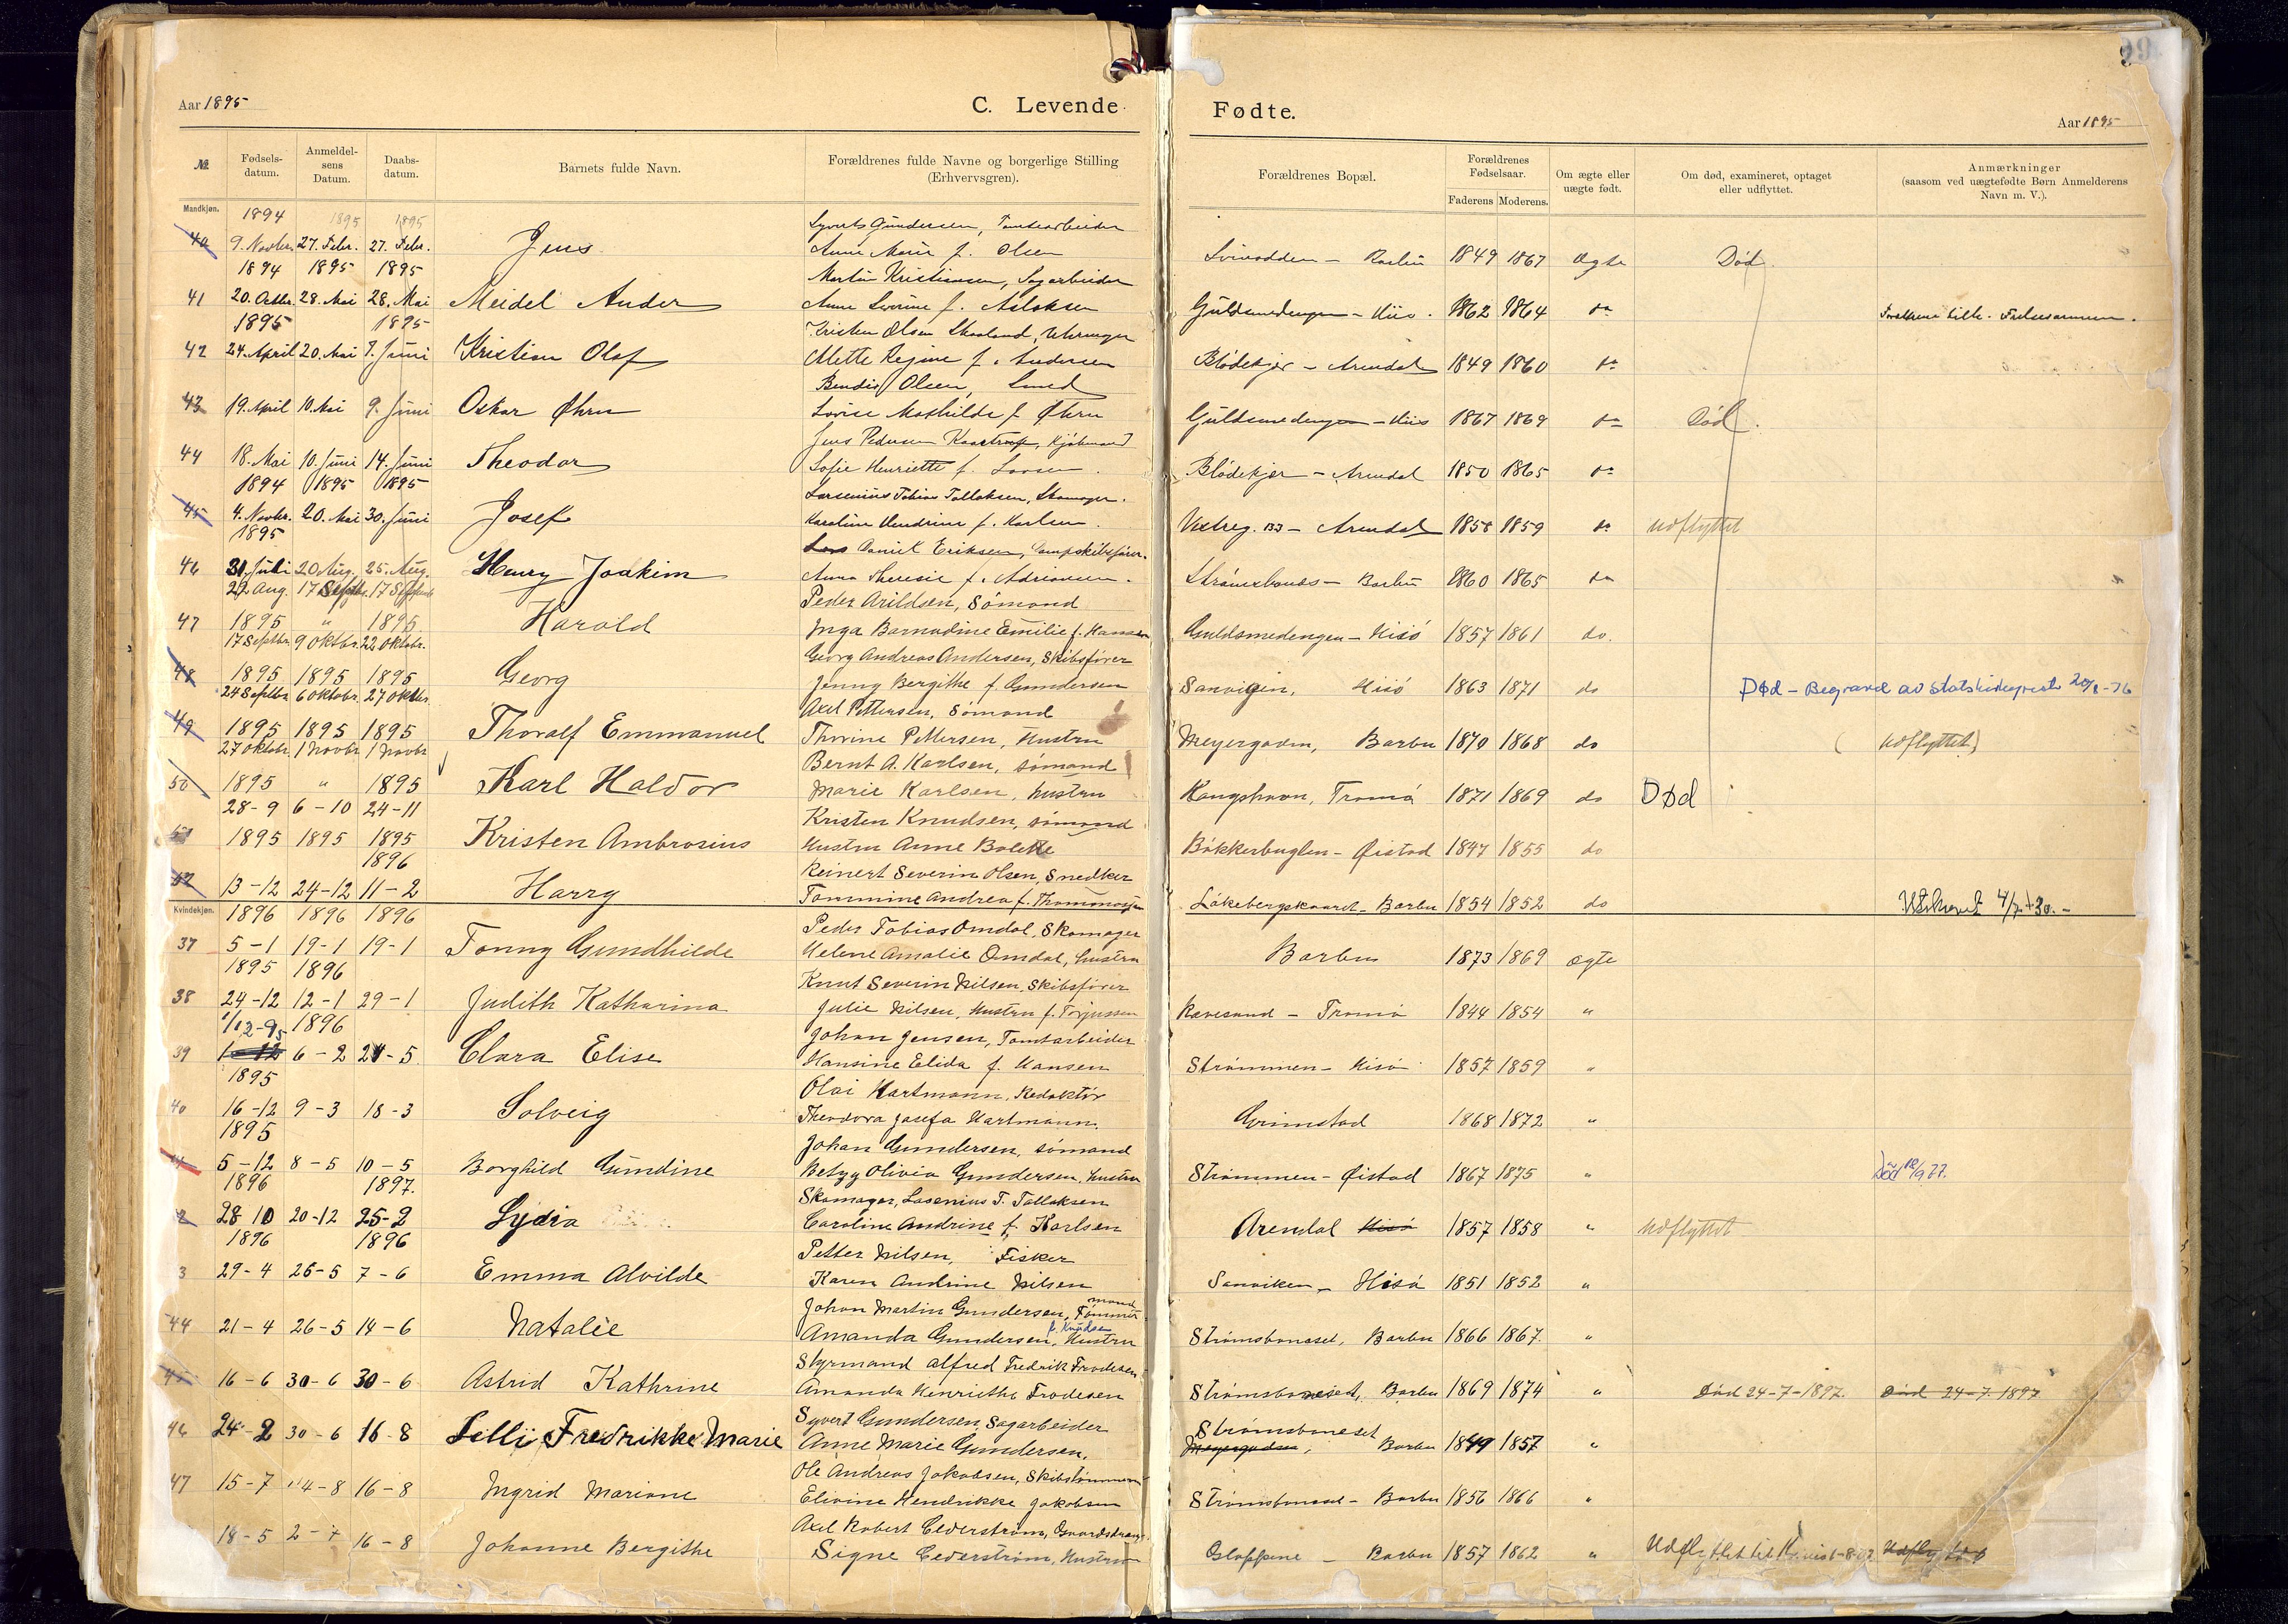 Aar 1895
C. Levende
Fødte.
Aar 1895
№
Fødsels-datum.
Anmeldel-sens Datum.
Daabs-datum.
Barnets fulde Navn.
Forældrenes fulde Navne og borgerlige Stilling (Erhvervsgren).
Forældrenes Bopæl.
Forældrenes Fødselsaar.
Faderens Moderens.
Om ægte eller uægte født.
Om død, examineret, optaget eller udflyttet.
Anmærkninger (saasom ved uægtefødte Børn Anmelderens Navn m. V.).
Mandkjøn.
1894 1895 1895
Syverts Gundersen, Tomtearbeider
40 9. Novbr. 27. Febr. 27. Febr. Jens Anne Marie f. Olsen Barbu 1849 1867 Ægte Død.
1894 1895 1895
Martin Kristiansen, Sagarbeider
41 20. Octbr. 28. Mai 28. Mai Meidel Ander Anne Severine f. Aslaksen Guldsmedengen - Hiis. 1862 1864 do Forældrene tilh. Frelsesarmeen.
1895 1895
Kristen Olsen Skaaland, Uhrmager
42 24. April 20. Mai 7. Juni Kristian Olaf Mette Regine f. Andersen Blødekjær - Arendal 1849 1860 do
Bendix Olsen, Smed
43 19. April 10. Mai 9. Juni Oskar Øhrn Lovise Mathilde f. Øhrn Guldsmedengen - Hiis 1867 1869 do Død.
Jens Pedersen Kaastrup, Kjøbmand
44 18. Mai 10. Juni 14. Juni Theodor Sofie Henriette f. Larsen. Blødekjær - Arendal 1850 1865 do
1894 1895 1895
Larsenius Tobias Tallaksen, Skomager.
45 4. Novbr. 20. Mai 30. Juni Josef Karoline Andrine f. Karlsen. Vestreg. - Arendal 1858 1859 do Udflyttet
1895
Daniel Eriksen, Dampskibsfører.
46 31. Juli 20 Aug. 25. Aug. Henry Joakim Anna Theresie f. Adriansen. Strømsbonæs - Barbu 1860 1865 do
22 Aug. 17 Septbr. 17 Septembr
Peder Arildsen, Sømand
47 1895 " 1895 Harald Inga Barnadine Emilie f. Hansen Guldsmedengen - Hisö 1857 1861 do.
17 Septbr. 9 oktbr. 22 oktobr.
Georg Andreas Andersen, Skibsfører
48 1895 1895 1895 Georg Jenny Bergithe f. Gundersen Sanvigen, Hisö 1863 1871 do Død - Begravet av Statskirkeprest 20/8-76
24 Septbr 6 oktobr. 27 oktbr.
Axel Pettersen, Sömand
49 1895 1895 1895 Thoralf Emmanuel Thorine Pettersen, Hustru Meyergaden, Barbu 1870 1868 do (Udflyttet)
27 oktobr. 1 Novbr 1 Novbr
Bernt A. Karlsen, sömand
50 1895 " 1895 Karl Haldor Marie Karlsen, hustru Kongshavn, Tromö 1871 1869 do DØd
28-9 6-10 24-11
Kristen Knudsen, sömand
51 1895 1895 1895 Kristen Ambrosius Hustru Anne Bolette Bökkerbuglen - Øistad 1847 1855 do
1896
Reinert Severin Olsen, Snedker
52 13-12 24-12 11-2 Harry Tommine Andrea f. Thommassen Løkebergskaaret - Barbu 1854 1852 do Utskrevet 4/7-30.-
Kvindekjøn.
1896 1896 1896
Peder Tobias Omdal, Skomager
37 5-1 19-1 19-1 Tonny Gundhilde Helene Amalie Omdal, hustru Barbu 1873 1869 ægte
1895 1896
Knut Severin Nilsen, Skibsfører
38 24-12 12-1 29-1 Judith Katharina Julie Nilsen, Hustru f. Torjussen Ravesund - Tromö 1844 1854 "
1/12-95 1896
Johan Jensen, Tomtarbeider
39 1-12 6-2 24-5 Clara Elise Hansine Elida f. Hansen Strömmen - Hisö 1857 1859 "
1895
Olai Hartmann, Redaktör
40 16-12 9-3 18-3 Solveig Theodora Josefa Hartmann. Grimstad 1868 1872 "
1895
Johan Gundersen, sömand
41 5-12 8-5 10-5 Borghild Gundine Betzy Olivia Gundersen, hustru Strömmen - Øistad 1867 1875 " Död 18/9 77.
1896 1897.
Skomager, Lasenius T. Tallaksen
2 28 10 20-12 25-2 Lydia Caroline Andrine f. Karlsen Arendal Hisö 1857 1858 " Udflyttet
1896 1896
Petter Nilsen, Fisker
3 29-4 26-5 7-6 Emma Alvilde Karen Andrine Nilsen Sanviken - Hisö 1851 1852 "
Johan Martin Gundersen, Tömmermand
f. Knudsen
44 21-4 26-5 14-6 Natalie Amanda Gundersen, Hustru Strömsboneset, Barbu 1866 1867. "
Styrmand Alfred Fredrik Frodesen
45 16-6 30-6 30-6 Astrid Kathrine Amanda Henriethe Frodesen Strömsboneset, Barbu 1869 1874 " Död 24-7-1897. Död 24-7 1897
Syvert Gundersen Sagarbeider Strömsboneset
46 24-2 30-6 16-8 Lilli Fredrikke Marie Anne Marie Gundersen. Meyergaden, Barbu 1849 1857 "
Ole Andreas Jakobsen, Skibstömmerm
47 15-7 14-8 16-8 Ingrid Marione Elivine Hendrikke Jakobsen Strömsboneset - Barbu 1856 1866 "
Axel Robert Cederström, Gaardsdreng.
18-5 2-7 16-8 Johanne Bergithe Signe Cederström, Hustru Gloppene - Barbu 1857 1862 " Udflyttet til